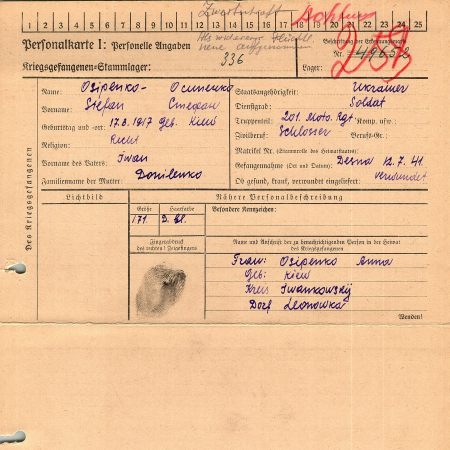 1 2 3 4 5 6 7 8 9 10 11 12 13 14 15 16 17 18 19 20 21 22 23 24 25
Personalkarte I: Personelle Angaben
Kriegsgefangenen-Stammlager: 336
Beschriftung der Erkennungsmarke
Nr. 49652
Lager:
Des Kriegsgefangenen
Name: Osipenko- Осипенко
Vorname: Stefan Степан
Geburtstag und -ort: 17.8.1917 Geb. Kiew
Religion:
Vorname des Vaters: Iwan
Familienname der Mutter: Donilenko
Staatsangehörigkeit: Ukrainer
Dienstgrad: Soldat
Truppenteil: 201. Moto. Rgt Komp. usw.:
Zivilberuf: Schlosser Berufs-Gr.:
Matrikel Nr. (Stammrolle des Heimatstaates):
Gefangennahme (Ort und Datum): Desna 12.7.41.
Ob gesund, krank, verwundet eingeliefert: verwundet
Lichtbild
Nähere Personalbeschreibung
Größe
Haarfarbe
Besondere Kennzeichen:
171.
D. bl.
Fingerabdruck
des rechten Zeigefingers
Name und Anschrift der zu benachrichtigenden Person in der Heimat
des Kriegsgefangenen
Frau: Osipenko Anna
Geb: Kiew
Kreis Iwankowskij
Dorf Leonowka
Wenden!